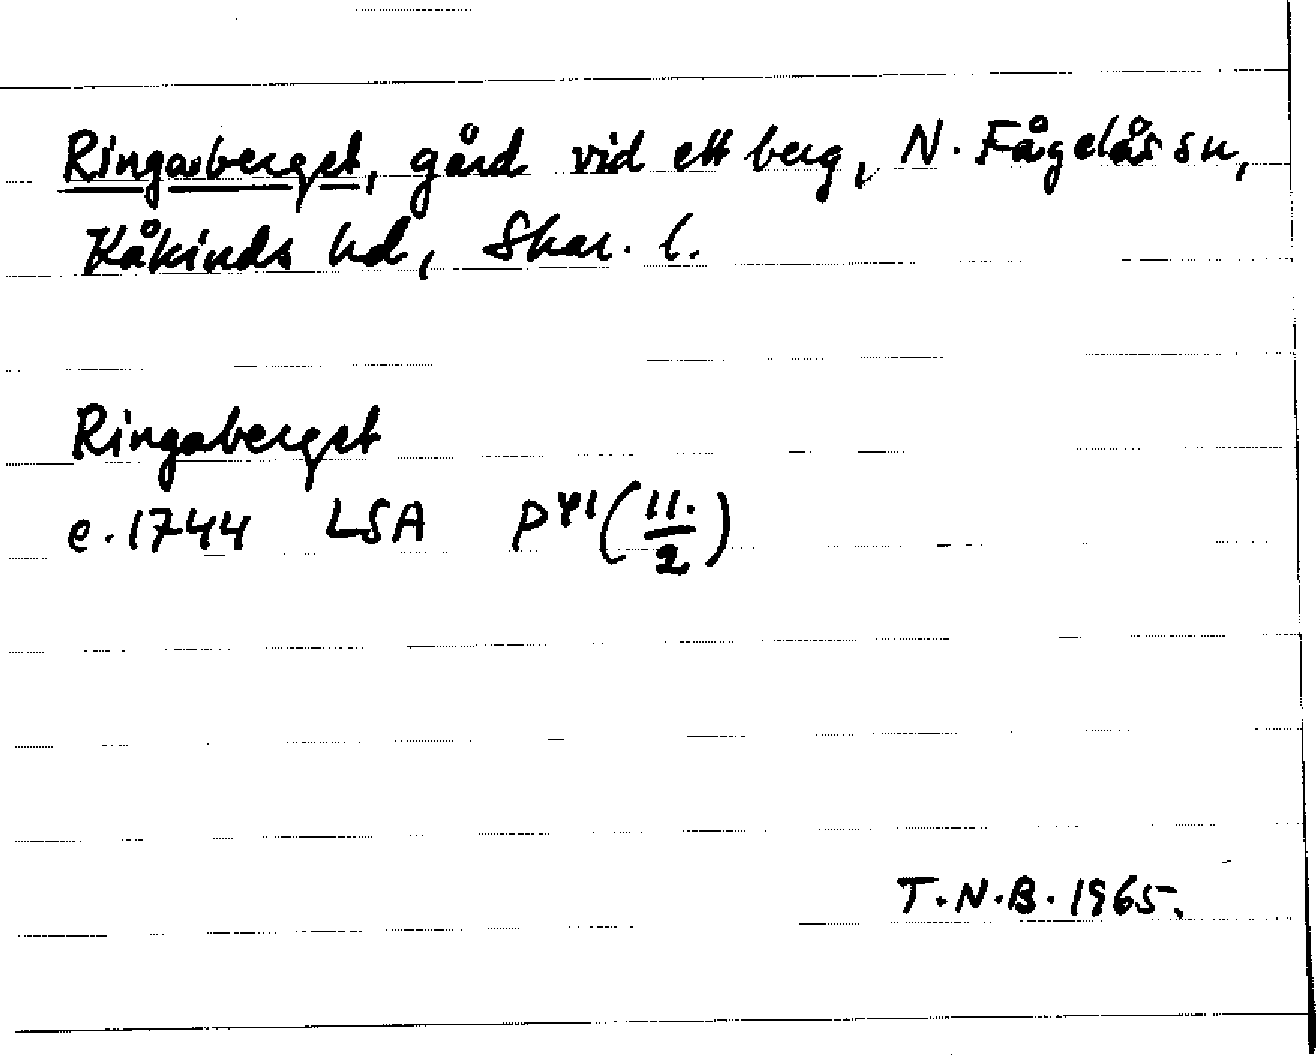 Ringaberget, gård vid ett berg, N. Fågelås sn,
Kåkinds hd, Skar. l.
Ringaberget
e. 1744 LSA P⁴¹ (11./2)
T.N.B. 1965.